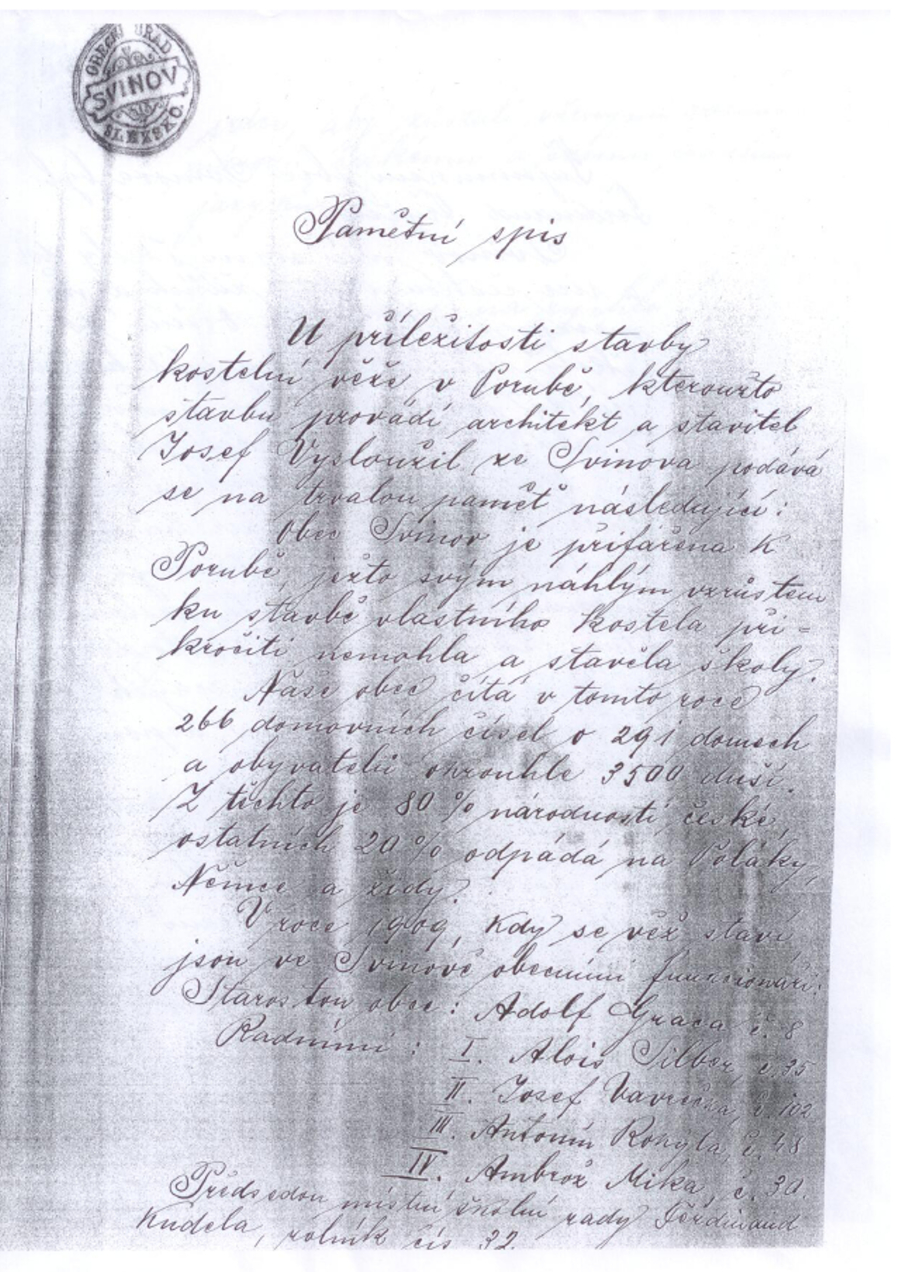 OBECNÍ ÚŘAD
SVINOV
SLEZSKO.
Pamětní spis
U příležitosti stavby
kostelní věže v Porubě, kteroužto
stavbu provádí architekt a stavitel
Josef Vysloužil ze Svinova podává
se na trvalou paměť následující:
Obec Svinov je přifařena k
Porubě, ježto svým náhlým vzrůstem
ku stavbě vlastního kostela při-
kročiti nemohla a stavěla školy.
Naše obec čítá v tomto roce
266 domovních čísel o 291 domech
a obyvatelů okrouhle 3500 duší.
Z těchto je 80% národnosti české,
ostatních 20% odpádá na Poláky,
Němce a židy.
V roce 1909, kdy se věž staví
jsou ve Svinově obecními funcionáři:
Starostou obce: Adolf Graca č. 8
Radními: I. Alois Silber, č. 35
II. Josef Vavrečka, č. 102
III. Antonín Rokyta, č. 48
IV. Ambrož Mika, č. 30.
Předsedou místní školní rady Ferdinand
Kudela, rolník čís 32.